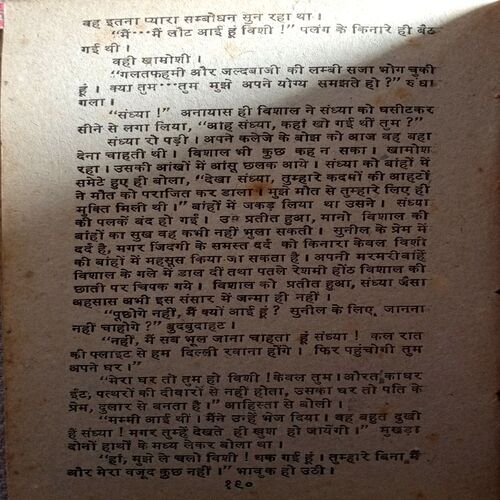 वह इतना प्यारा सम्बोधन सुन रहा था।
"मैं····मैं लौट आई हूं विशी !" पलंग के किनारे ही बैठ
गई थी।
वही खामोशी।
"गलतफहमी और जल्दबाजी की लम्बी सजा भोग चुकी
हूं । क्या तुम····तुम मुझे अपने योग्य समझते हो ?" रुंधा
गला।
"संध्या !" अनायास ही विशाल ने संध्या को घसीटकर
सीने से लगा लिया, "आह संध्या, कहां खो गई थीं तुम ?"
संध्या रो पड़ी। अपने कलेजे के बोझ को आज वह बहा
देना चाहती थी। विशाल भी कुछ कह न सका। खामोश
रहा। उसकी आंखों में आंसू छलक आये। संध्या को बांहों में
समेटे हुए ही बोला, "देखा संध्या, तुम्हारे कदमों की आहटों
ने मौत को पराजित कर डाला। मुझे मौत से तुम्हारे लिए ही
मुक्ति मिली थी।" बांहों में जकड़ लिया था उसने। संध्या
की पलकें बंद हो गईं। उसे प्रतीत हुआ, मानो विशाल की
बांहों का सुख वह कभी नहीं भुला सकती। सुनील के प्रेम में
दर्द है, मगर जिंदगी के समस्त दर्द को किनारा केवल विशी
की बांहों में महसूस किया जा सकता है। अपनी मरमरी बांहें
विशाल के गले में डाल दीं तथा पतले रेशमी होंठ विशाल की
छाती पर चिपक गये। विशाल को प्रतीत हुआ, संध्या जैसा
अहसास अभी इस संसार में जन्मा ही नहीं।
"पूछोगे नहीं, मैं क्यों आई हूं ? सुनील के लिए जानना
नहीं चाहोगे ?" बुदबुदाहट।
"नहीं, मैं सब भूल जाना चाहता हूं संध्या ! कल रात
की फ्लाइट से हम दिल्ली रवाना होंगे। फिर पहुंचोगी तुम
अपने घर।"
"मेरा घर तो तुम हो विशी ! केवल तुम। औरत का घर
ईंट, पत्थरों की दीवारों से नहीं होता, उसका घर तो पति के
प्रेम, दुलार से बनता है।" आहिस्ता से बोली।
"मम्मी आई थीं। मैंने उन्हें भेज दिया। वह बहुत दुखी
हैं संध्या ! मगर तुम्हें देखते ही खुश हो जायेंगी।" मुखड़ा
दोनों हाथों के मध्य लेकर बोला था।
"हां, मुझे ले चलो विशी ! थक गई हूं। तुम्हारे बिना मैं
और मेरा वजूद कुछ नहीं।" भावुक हो उठी।
१९०